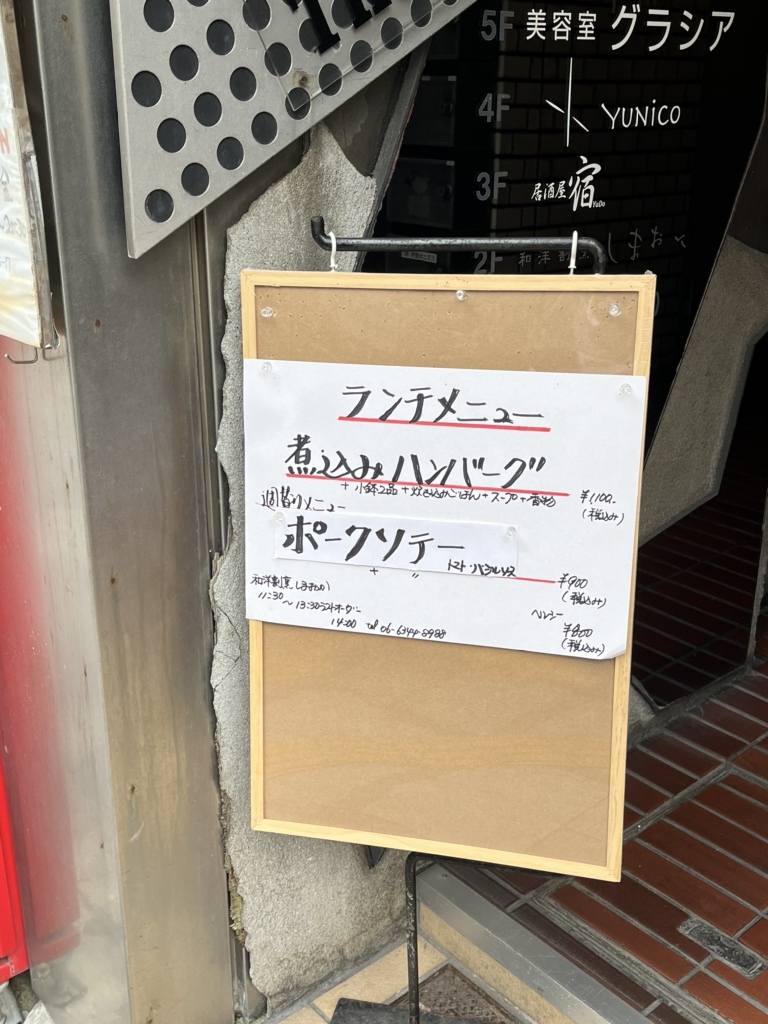 5F 美容室 グラシア
4F YUNiCO
3F 居酒屋 宿 YaDo
2F 和洋割烹 しまおか
ランチメニュー
煮込みハンバーグ
+ 小鉢2品 + 炊き込みごはん + スープ + 香物 ¥1,100.
(税込み)
週替りメニュー
ポークソテー
トマト・バジルソース
+ 〃 ¥900
(税込み)
和洋割烹 しまおか
11:30 ～ 13:30ラストオーダー
14:00 Tel 06-6344-8988
ヘルシー ¥800
(税込み)